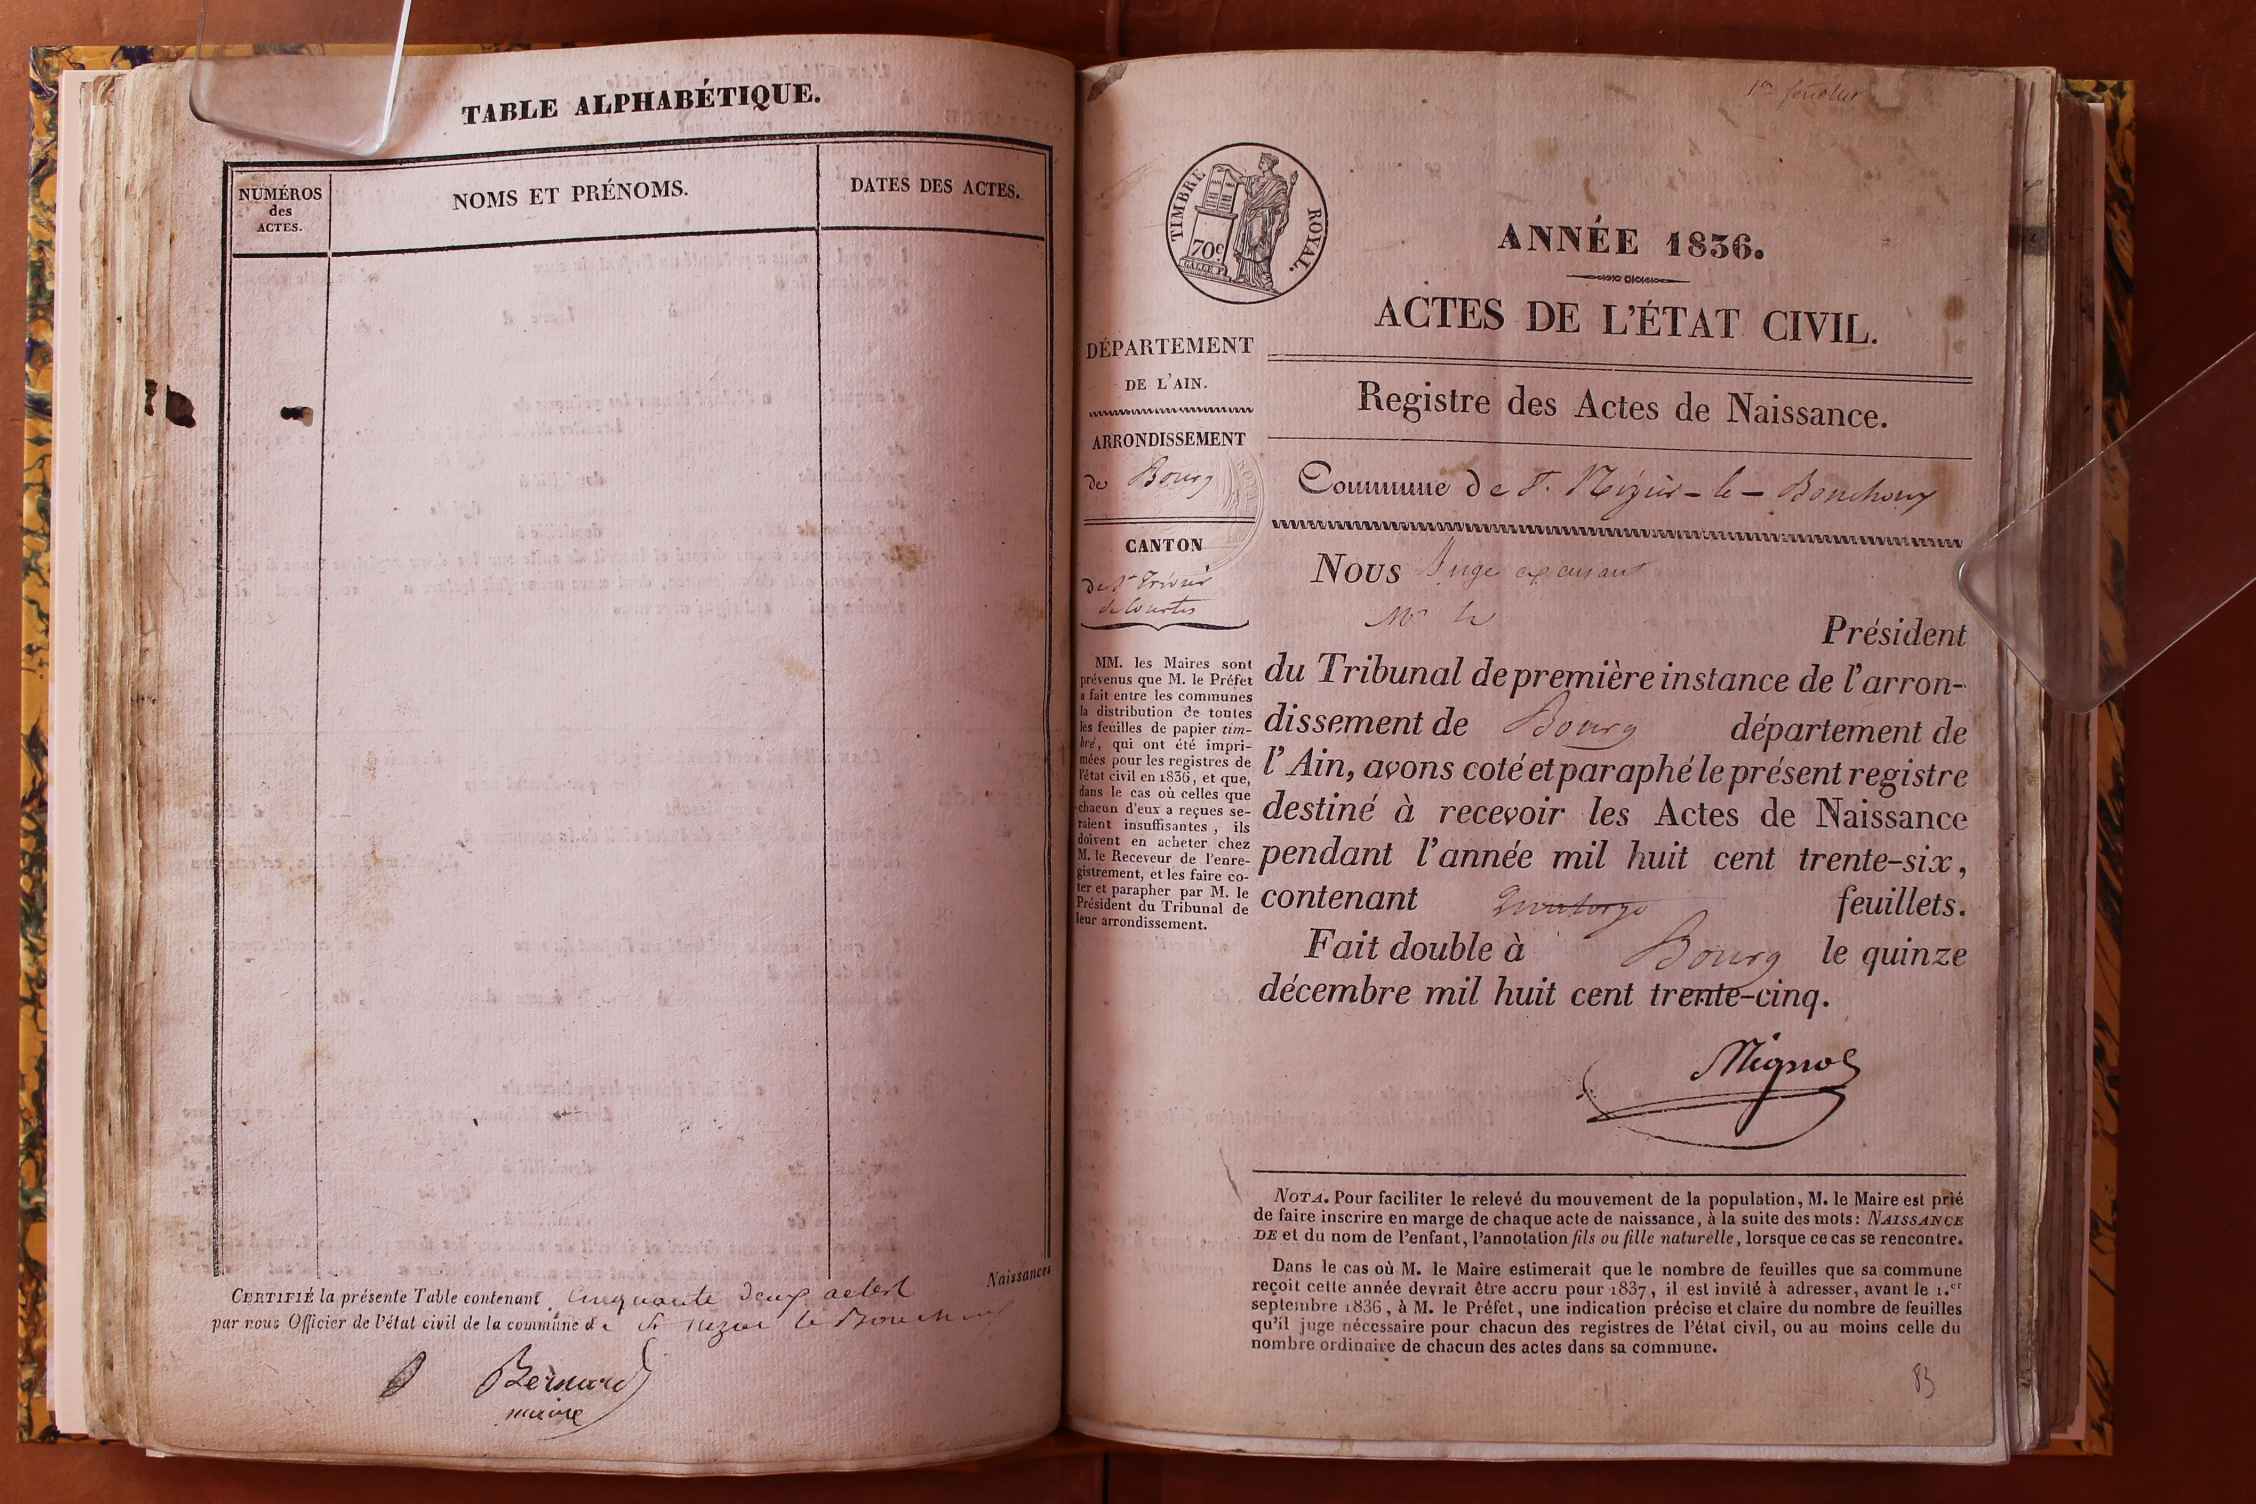 TABLE ALPHABÉTIQUE.
NUMÉROS
des
ACTES.
NOMS ET PRÉNOMS.
DATES DES ACTES.
Naissances
CERTIFIÉ la présente Table contenant Cinquante deux actes
par nous Officier de l'état civil de la commune de St nizier le Bouchoux
Bernard
maire
1er feuillet
TIMBRE ROYAL.
70c
ANNÉE 1836.
ACTES DE L'ÉTAT CIVIL.
DÉPARTEMENT
DE L'AIN.
ARRONDISSEMENT
de Bourg
CANTON
de St Trivier
de Courtes
MM. les Maires sont
prévenus que M. le Préfet
a fait entre les communes
la distribution de toutes
les feuilles de papier tim-
bré, qui ont été impri-
mées pour les registres de
l'état civil en 1836, et que,
dans le cas où celles que
chacun d'eux a reçues se-
raient insuffisantes, ils
doivent en acheter chez
M. le Receveur de l'enre-
gistrement, et les faire co-
ter et parapher par M. le
Président du Tribunal de
leur arrondissement.
Registre des Actes de Naissance.
Commune de St. Nizier-le-Bouchoux
Nous Juge
Mr le
Président
du Tribunal de première instance de l'arron-
dissement de Bourg département de
l'Ain, avons coté et paraphé le présent registre
destiné à recevoir les Actes de Naissance
pendant l'année mil huit cent trente-six,
contenant quatorze feuillets.
Fait double à Bourg le quinze
décembre mil huit cent trente-cinq.
Mignot
NOTA. Pour faciliter le relevé du mouvement de la population, M. le Maire est prié
de faire inscrire en marge de chaque acte de naissance, à la suite des mots: NAISSANCE
DE et du nom de l'enfant, l'annotation fils ou fille naturelle, lorsque ce cas se rencontre.
Dans le cas où M. le Maire estimerait que le nombre de feuilles que sa commune
reçoit cette année devrait être accru pour 1837, il est invité à adresser, avant le 1.er
septembre 1836, à M. le Préfet, une indication précise et claire du nombre de feuilles
qu'il juge nécessaire pour chacun des registres de l'état civil, ou au moins celle du
nombre ordinaire de chacun des actes dans sa commune.
83